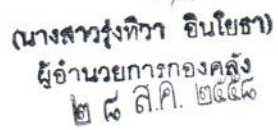 (นางสาวรุ่งทิวา อินโยธา)
ผู้อำนวยการกองคลัง
๒ ๘ ส.ค. ๒๕๕๘